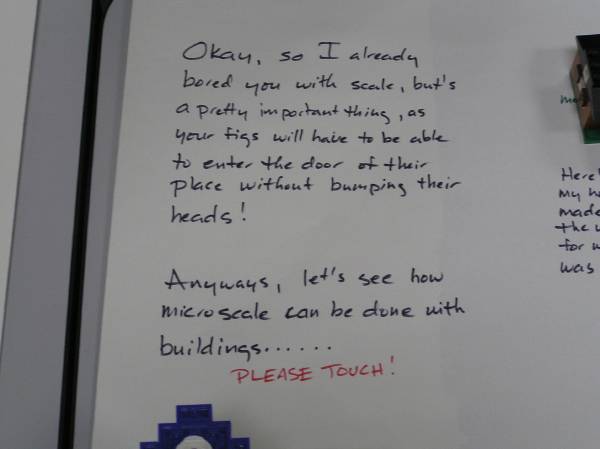 Okay, so I already
bored you with scale, but's
a pretty important thing, as
your figs will have to be able
to enter the door of their
place without bumping their
heads!
Anyways, let's see how
microscale can be done with
buildings......
PLEASE TOUCH!
my
made
for
was